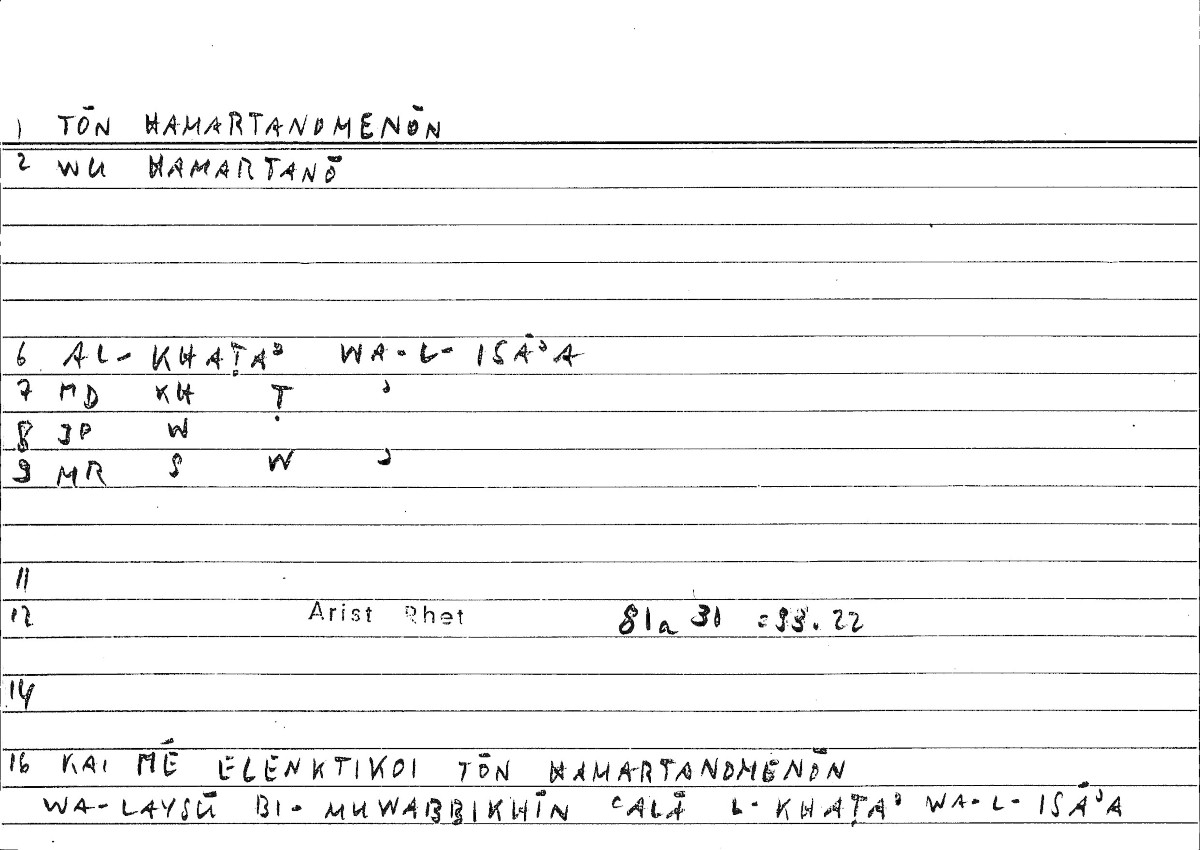 1 TŌN HAMARTANOMENŌN
2 WU HAMARTANŌ
6 AL-KHAṬAʾ WA-L-ISĀʾA
7 MD KH Ṭ ʾ
8 JP W
9 MR S W ʾ
11
12 Arist Rhet 81a 31 =93.22
14
16 KAI MĒ ELENKTIKOI TŌN HAMARTANOMENŌN
WA-LAYSŪ BI-MUWABBIKHĪN ʿALĀ L-KHAṬAʾ WA-L-ISĀʾA